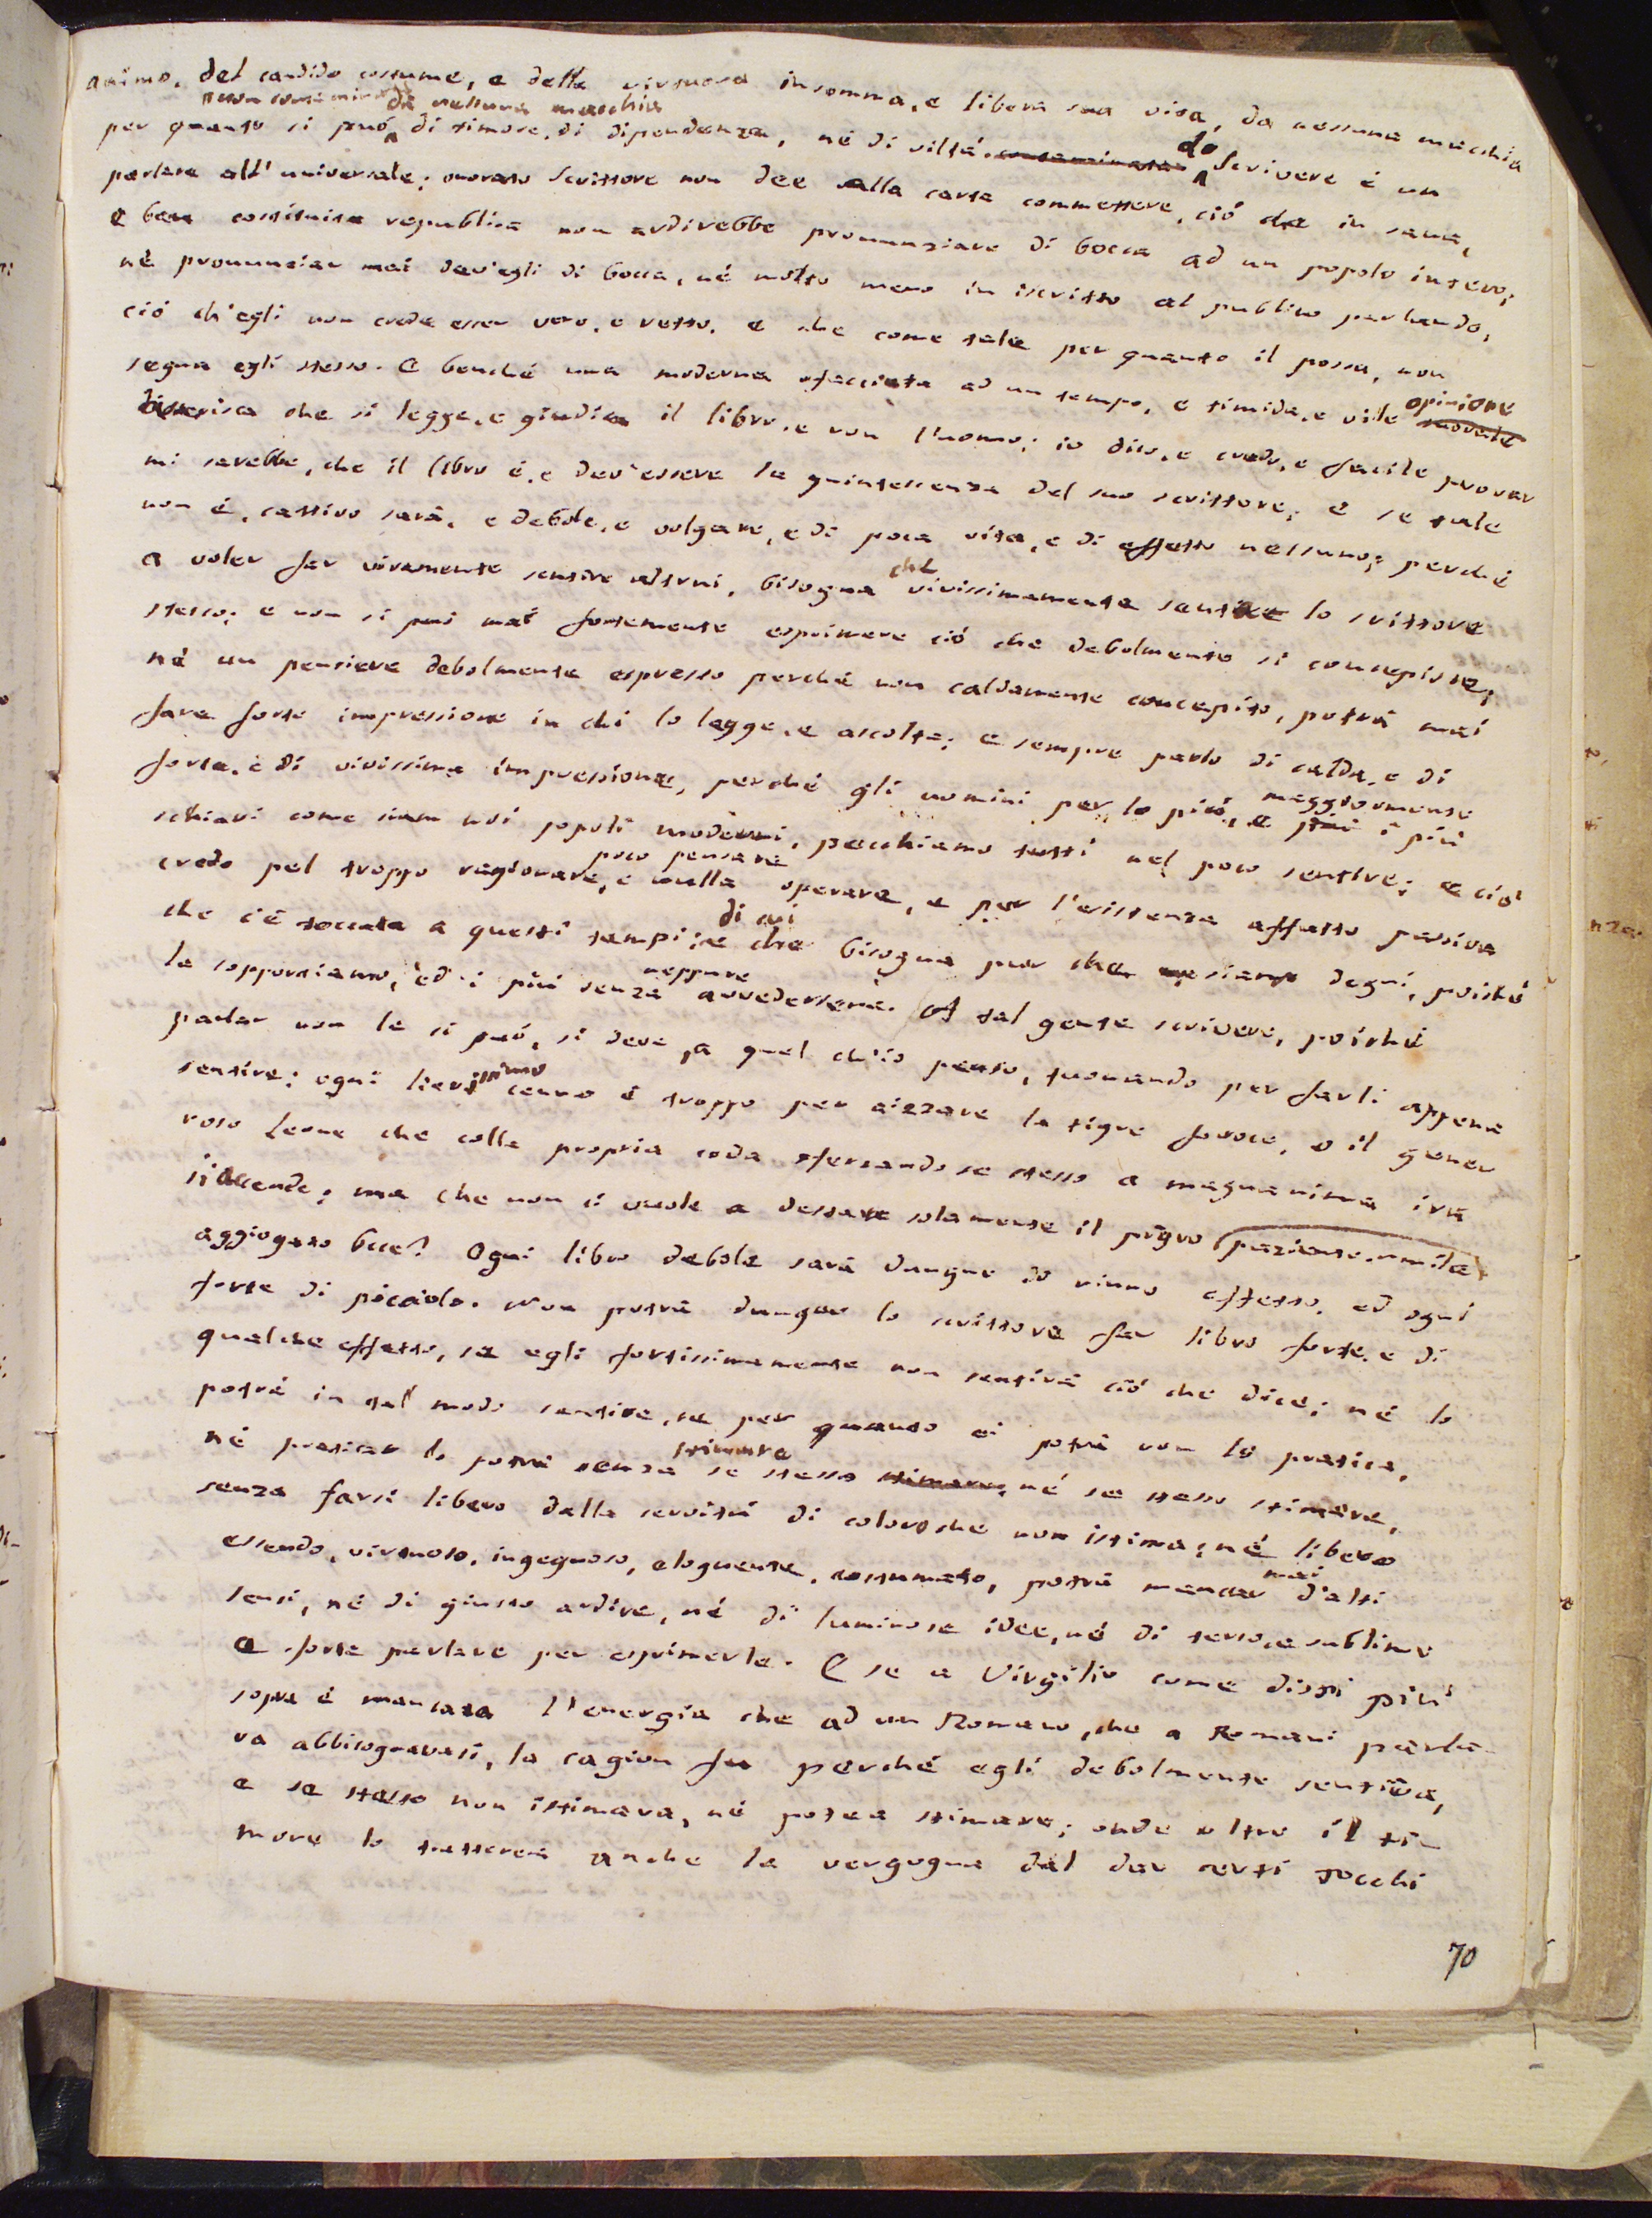 animo, del candido costume, e della virtuosa insomma, e libera sua vita, da nessuna macchia
non contaminata da nessuna macchia
per quanto si può di timore, di dipendenza, né di viltá. contaminata. Lo Scrivere é un
parlare all' universale; onorato Scrittore non dee alla carta commettere, ció che in sana,
e ben costituita republica non ardirebbe pronunziare di bocca ad un popolo intero;
né pronunziar mai dev'egli di bocca, né molto meno in iscritto al publico parlando,
ció ch'egli non creda esser vero, e retto, e che come tale per quanto il possa, non
segua egli stesso. E benché una moderna sfacciata ad un tempo, e timida, e vile opinione
asserisca che si legge, e giudica il libro, e non l'uomo; io dico, e credo, e facile provar
mi sarebbe, che il libro é, e dev'essere la quintessenza del suo scrittore; e se tale
non é, cattivo sará, e debole, e volgare, e di poca vita, e di effetto nessuno; perché
a voler far vivamente sentire altrui, bisogna che vivissimamente senta lo scrittore
stesso; e non si può mai fortemente esprimere ció che debolmente si concepisce;
né un pensiere debolmente espresso perché non caldamente concepito, potrá mai
fare forte impressione in chi lo legge, e ascolta; e sempre parlo di calda, e di
forte, e di vivissima impressione, perché gli uomini per lo piú, e maggiormente i piú
schiavi come siam noi popoli moderni, pecchiamo tutti nel poco sentire; e ció
credo pel troppo ragionare, poco pensare e nulla operare, e per l'esistenza affatto passiva
che c'é toccata a questi tempi; e di cui bisogna pur che siamo degni, poiché
la sopportiamo, ed i piú senza neppure avvedersene. A tal gente scrivere, poiché
parlar non le si può, si deve, a quel ch'io penso, tuonando per farli appena
sentire; ogni lievissimo cenno é troppo per aizzare la tigre feroce, o il gener
roso Leone che colla propria coda sferzando se stesso a magnanima ira
s'accende; ma che non ci vuole a destare solamente il pigro (paziente, umile)
aggiogato bue? Ogni libro debole sará dunque di niuno effetto, ed ogni
forte di picciolo. Non potrá dunque lo scrittore far libro forte, e di
qualche effetto, se egli fortissimamente non sentirá ció che dice; né lo
potrá in tal modo sentire, se per quanto ei potrá non lo pratica,
né praticar lo potrá senza stimare se stesso stimare; né se stesso stimare,
senza farsi libero dalla servitú di coloro che non istima; né libero
essendo, virtuoso, ingegnoso, eloquente, costumato, potrá mancar mai d'alti
sensi, né di giusto ardire, né di luminose idee, né di terso, e sublime
e forte parlare per esprimerle. E se a Virgilio come dissi piú
sopra é mancata l'energia che ad un Romano, che a Romani parla-
va abbisognavasi, la cagion fu perché egli debolmente sentiva,
e se stesso non istimava, né potea stimare; onde oltre il ti-
more lo tratterrá anche la vergogna dal dar certi tocchi
70